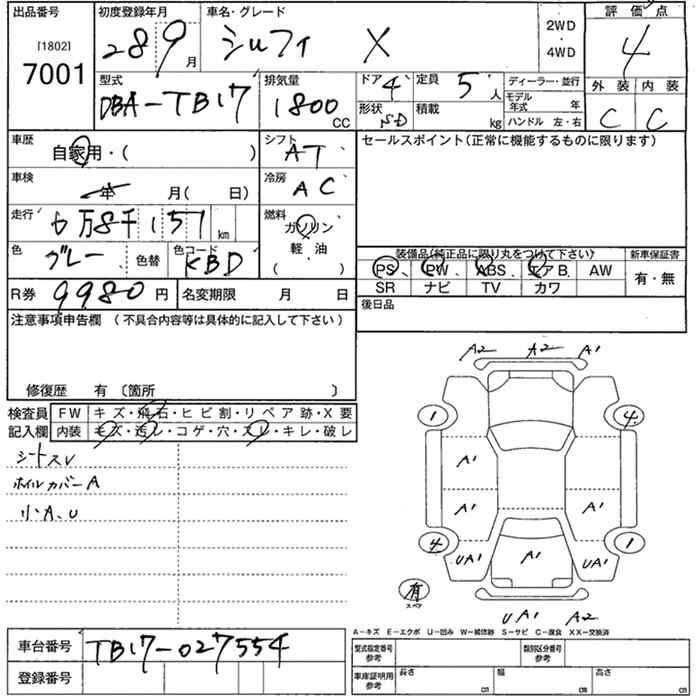 出品番号 初度登録年月 車名・グレード 評価点
[1802] 7001 28 9月 シルフィ X 2WD・4WD 4
型式 排気量 ドア4 定員 5人 ディーラー・並行 外装 内装
DBA-TB17 1800CC 形状 SD 積載 kg モデル年式 年 ハンドル 左・右 C C
車歴 自家用・( ) シフト AT セールスポイント(正常に機能するものに限ります)
車検 年 月( 日) 冷房 AC
走行 6万8千151km 燃料 ガソリン・軽油 ( )
色 グレー 色替 色コード KBD 装備品(純正品に限り丸をつけて下さい) 新車保証書
PS、PW、ABS、エアB、AW 有・無
R券 9980円 名変期限 月 日 SR ナビ TV カワ
注意事項申告欄 (不具合内容等は具体的に記入して下さい) 後日品
修復歴 有 〔箇所 〕
A2 A2 A1
検査員 FW キズ・飛石・ヒビ割・リペア跡・X要 1 4
記入欄 内装 キズ・汚レ・コゲ・穴・スレ・キレ・破レ
シートスレ A1
ホイルカバーA
小A、U A1 A1
4 1
UA1 A1 UA1
有
スペア
UA1 A2
A-キズ E-エクボ U-凹み W-補修跡 S-サビ C-腐食 XX-交換済
車台番号 TB17-027554 型式指定番号 参考 類別区分番号 参考
登録番号 車庫証明用 参考 長さ cm 幅 cm 高さ cm